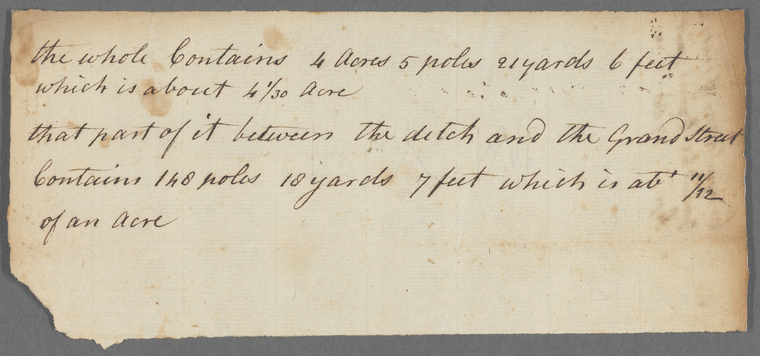 the whole Contains 4 Acres 5 poles 21 yards 6 feet
which is about 4 1/30 Acre
that part of it between the detch and the Grand Street
Contains 148 poles 18 yards 7 feet which is abt 11/12
of an Acre